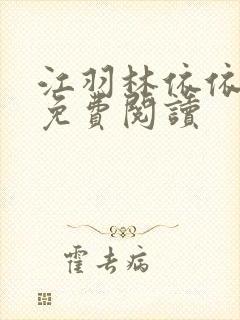 江羽林依依
免費閱讀
霍去病